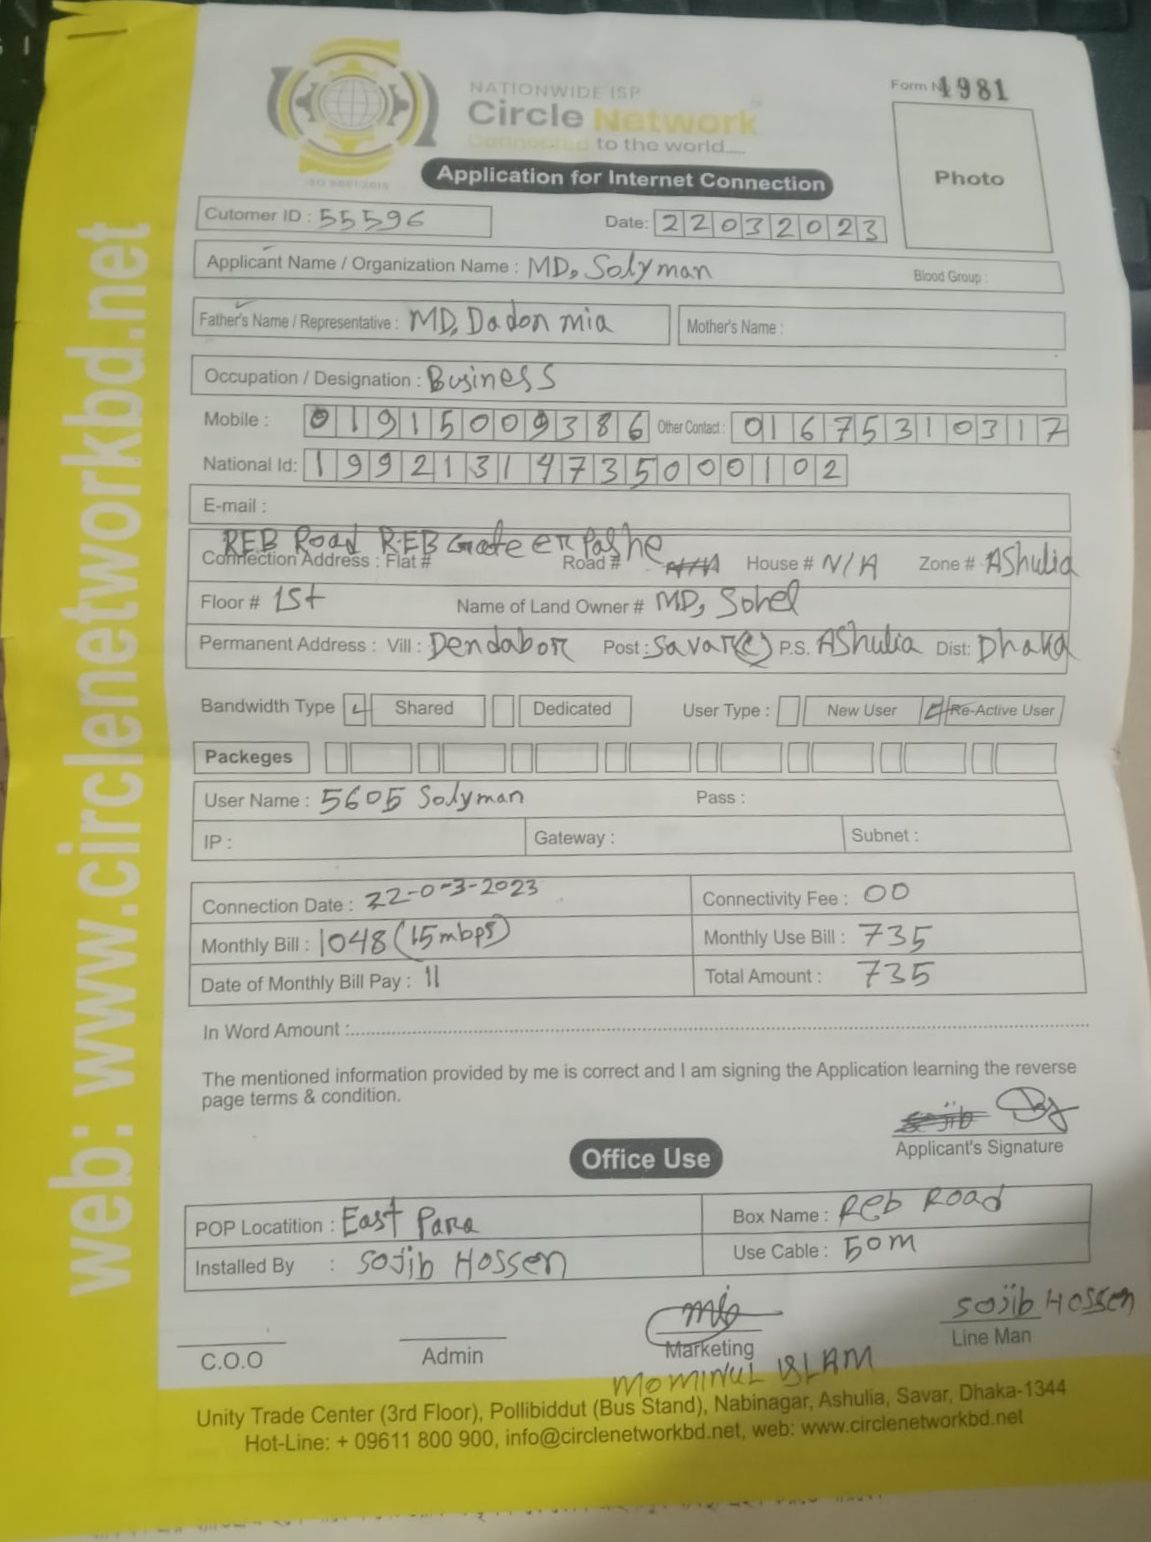 NATIONWIDE ISP
Circle Network
Connected to the world.....
ISO 9001:2015
Form № 1981
Photo
Application for Internet Connection
Cutomer ID : 55596
Date: 22032023
Applicant Name / Organization Name : MD, Solyman Blood Group :
Father's Name / Representative : MD, Dadon mia Mother's Name :
Occupation / Designation : Business
Mobile : 01915009386 Other Contact : 01675310317
National Id: 19921314735000102
E-mail :
REB Road R.EB Gate er Pashe
Connection Address : Flat # Road # N/A House # N/A Zone # AShulia
Floor # 1St Name of Land Owner # MD, Sohel
Permanent Address : Vill : Dendabor Post : Savar(c) P.S. AShulia Dist: Dhaka
Bandwidth Type Shared Dedicated User Type : New User Re-Active User
Packeges
User Name : 5605 Solyman Pass :
IP : Gateway : Subnet :
Connection Date : 22-0-3-2023 Connectivity Fee : 00
Monthly Bill : 1048 (15mbps) Monthly Use Bill : 735
Date of Monthly Bill Pay : 11 Total Amount : 735
In Word Amount :
The mentioned information provided by me is correct and I am signing the Application learning the reverse
page terms & condition.
Applicant's Signature
Office Use
POP Locatition : East Para Box Name : Reb Road
Installed By : Sojib Hossen Use Cable : 50m
Sojib Hossen
C.O.O Admin Marketing Line Man
MOMINUL ISLAM
Unity Trade Center (3rd Floor), Pollibiddut (Bus Stand), Nabinagar, Ashulia, Savar, Dhaka-1344
Hot-Line: + 09611 800 900, info@circlenetworkbd.net, web: www.circlenetworkbd.net
web: www.circlenetworkbd.net